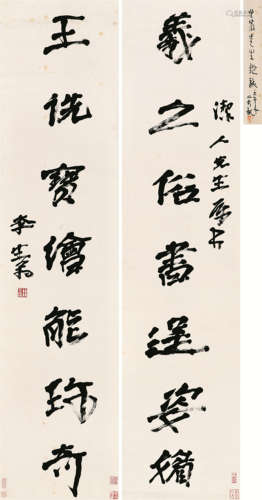 羲之俗書逞姿
潔人先生屬书
王詵寶繪能珍奇
李生翁